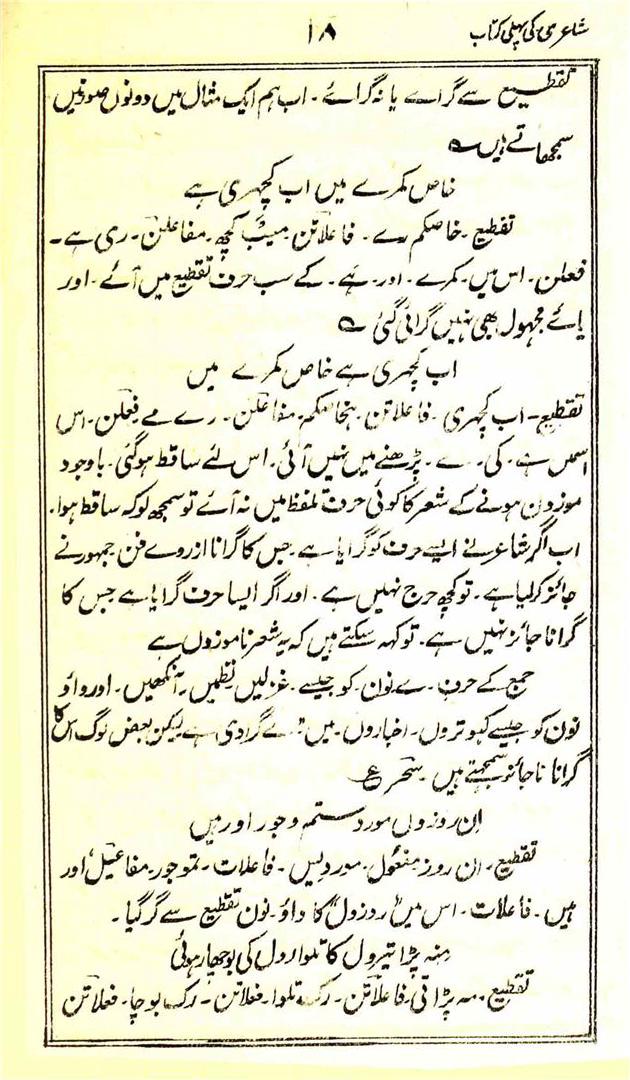 شاعری کی پہلی کتاب
۱۸
تقطیع سے گراے یا نہ گرائے۔ اب ہم ایک مثال میں دونوں صورتیں
سمجھاتے ہیں۔
خاص کمرے میں اب کچہری ہے
تقطیع۔ خاصکم رے۔ فاعلاتن۔ میںب کچھ۔ مفاعلن۔ ری ہے۔
فعلن۔ اس میں۔ کمرے۔ اور۔ ہے۔ کے سب حرف تقطیع میں آئے۔ اور
یائے مجہول بھی نہیں گرائی گئی
اب کچہری ہے خاص کمرے میں
تقطیع۔ اب کچہری۔ فاعلاتن۔ ہخاصکم۔ مفاعلن۔ رے مے فعلن۔ اس
اسمیں ہے۔ کی۔ ے۔ پڑھنے میں نہیں آئی۔ اس لئے ساقط ہوگئی۔ باوجود
موزون ہونے کے شعر کا کوئی حرف تلفظ میں نہ آے تو سمجھ لو کہ ساقط ہوا۔
اب اگر شاعر نے ایسے حرف کو گرایا ہے جس کا گرانا ازروے فن جمہور نے
جائز کرلیا ہے۔ تو کچھ حرج نہیں ہے۔ اور اگر ایسا حرف گرایا ہے جس کا
گرانا جائز نہیں ہے۔ تو کہہ سکتے ہیں کہ یہ شعر ناموزوں ہے
جمع کے حرف۔ ے نون۔ کو جیسے۔ غزلیں نظمیں۔ آنکھیں۔ اور واؤ
نون کو جیسے کبوتروں۔ اخباروں۔ میں۔ سے گرا دی ہے لیکن بعض لوگ اس کا
گرانا ناجائز سمجھتے ہیں۔ سحر ع
ان روزوں مورد ستم وجور اور میں
تقطیع۔ ان روز مفعول۔ موردس۔ فاعلات۔ تموجور۔ مفاعیل اور
میں۔ فاعلات۔ اس میں "روزوں" کا واؤ۔ نون تقطیع سے گر گیا۔
منہ پڑا تیروں کا تلواروں کی بوچھار ہوئی
تقطیع۔ مہ پڑا تی۔ فاعلاتن۔ رک تلوا۔ فعلاتن۔ رک بوچا۔ فعلاتن